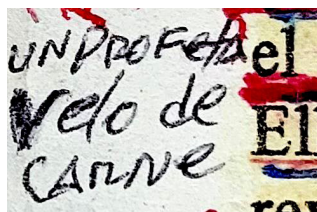 UN PROFETA el
VELO de El
CARNE